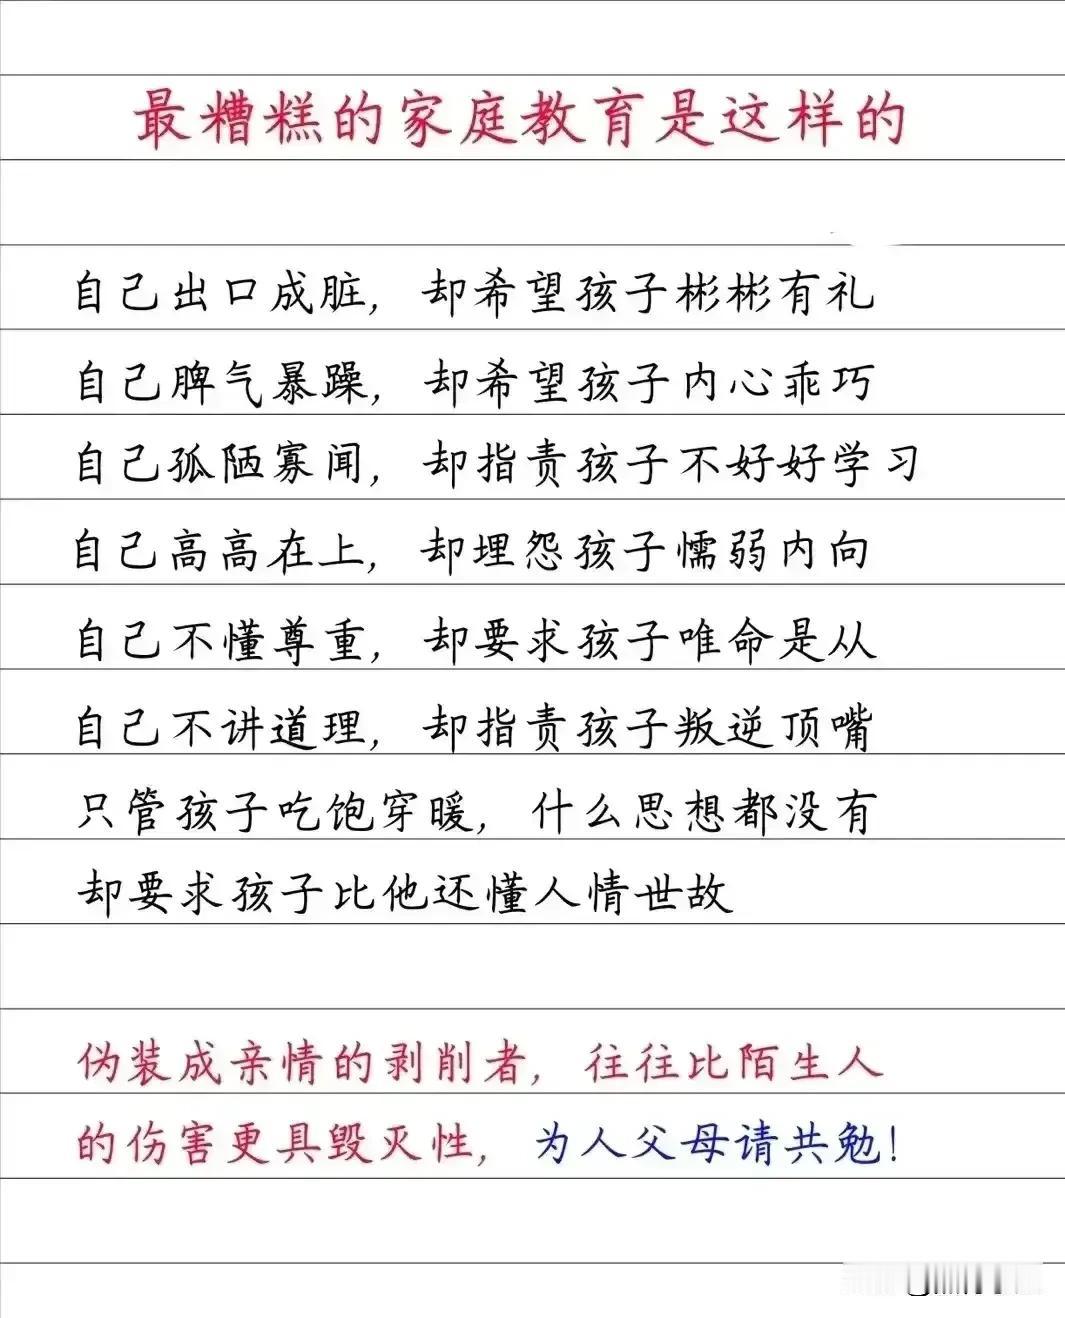 最糟糕的家庭教育是这样的
自己出口成脏，却希望孩子彬彬有礼
自己脾气暴躁，却希望孩子内心乖巧
自己孤陋寡闻，却指责孩子不好好学习
自己高高在上，却埋怨孩子懦弱内向
自己不懂尊重，却要求孩子唯命是从
自己不讲道理，却指责孩子叛逆顶嘴
只管孩子吃饱穿暖，什么思想都没有
却要求孩子比他还懂人情世故
伪装成亲情的剥削者，往往比陌生人
的伤害更具毁灭性，为人父母请共勉！